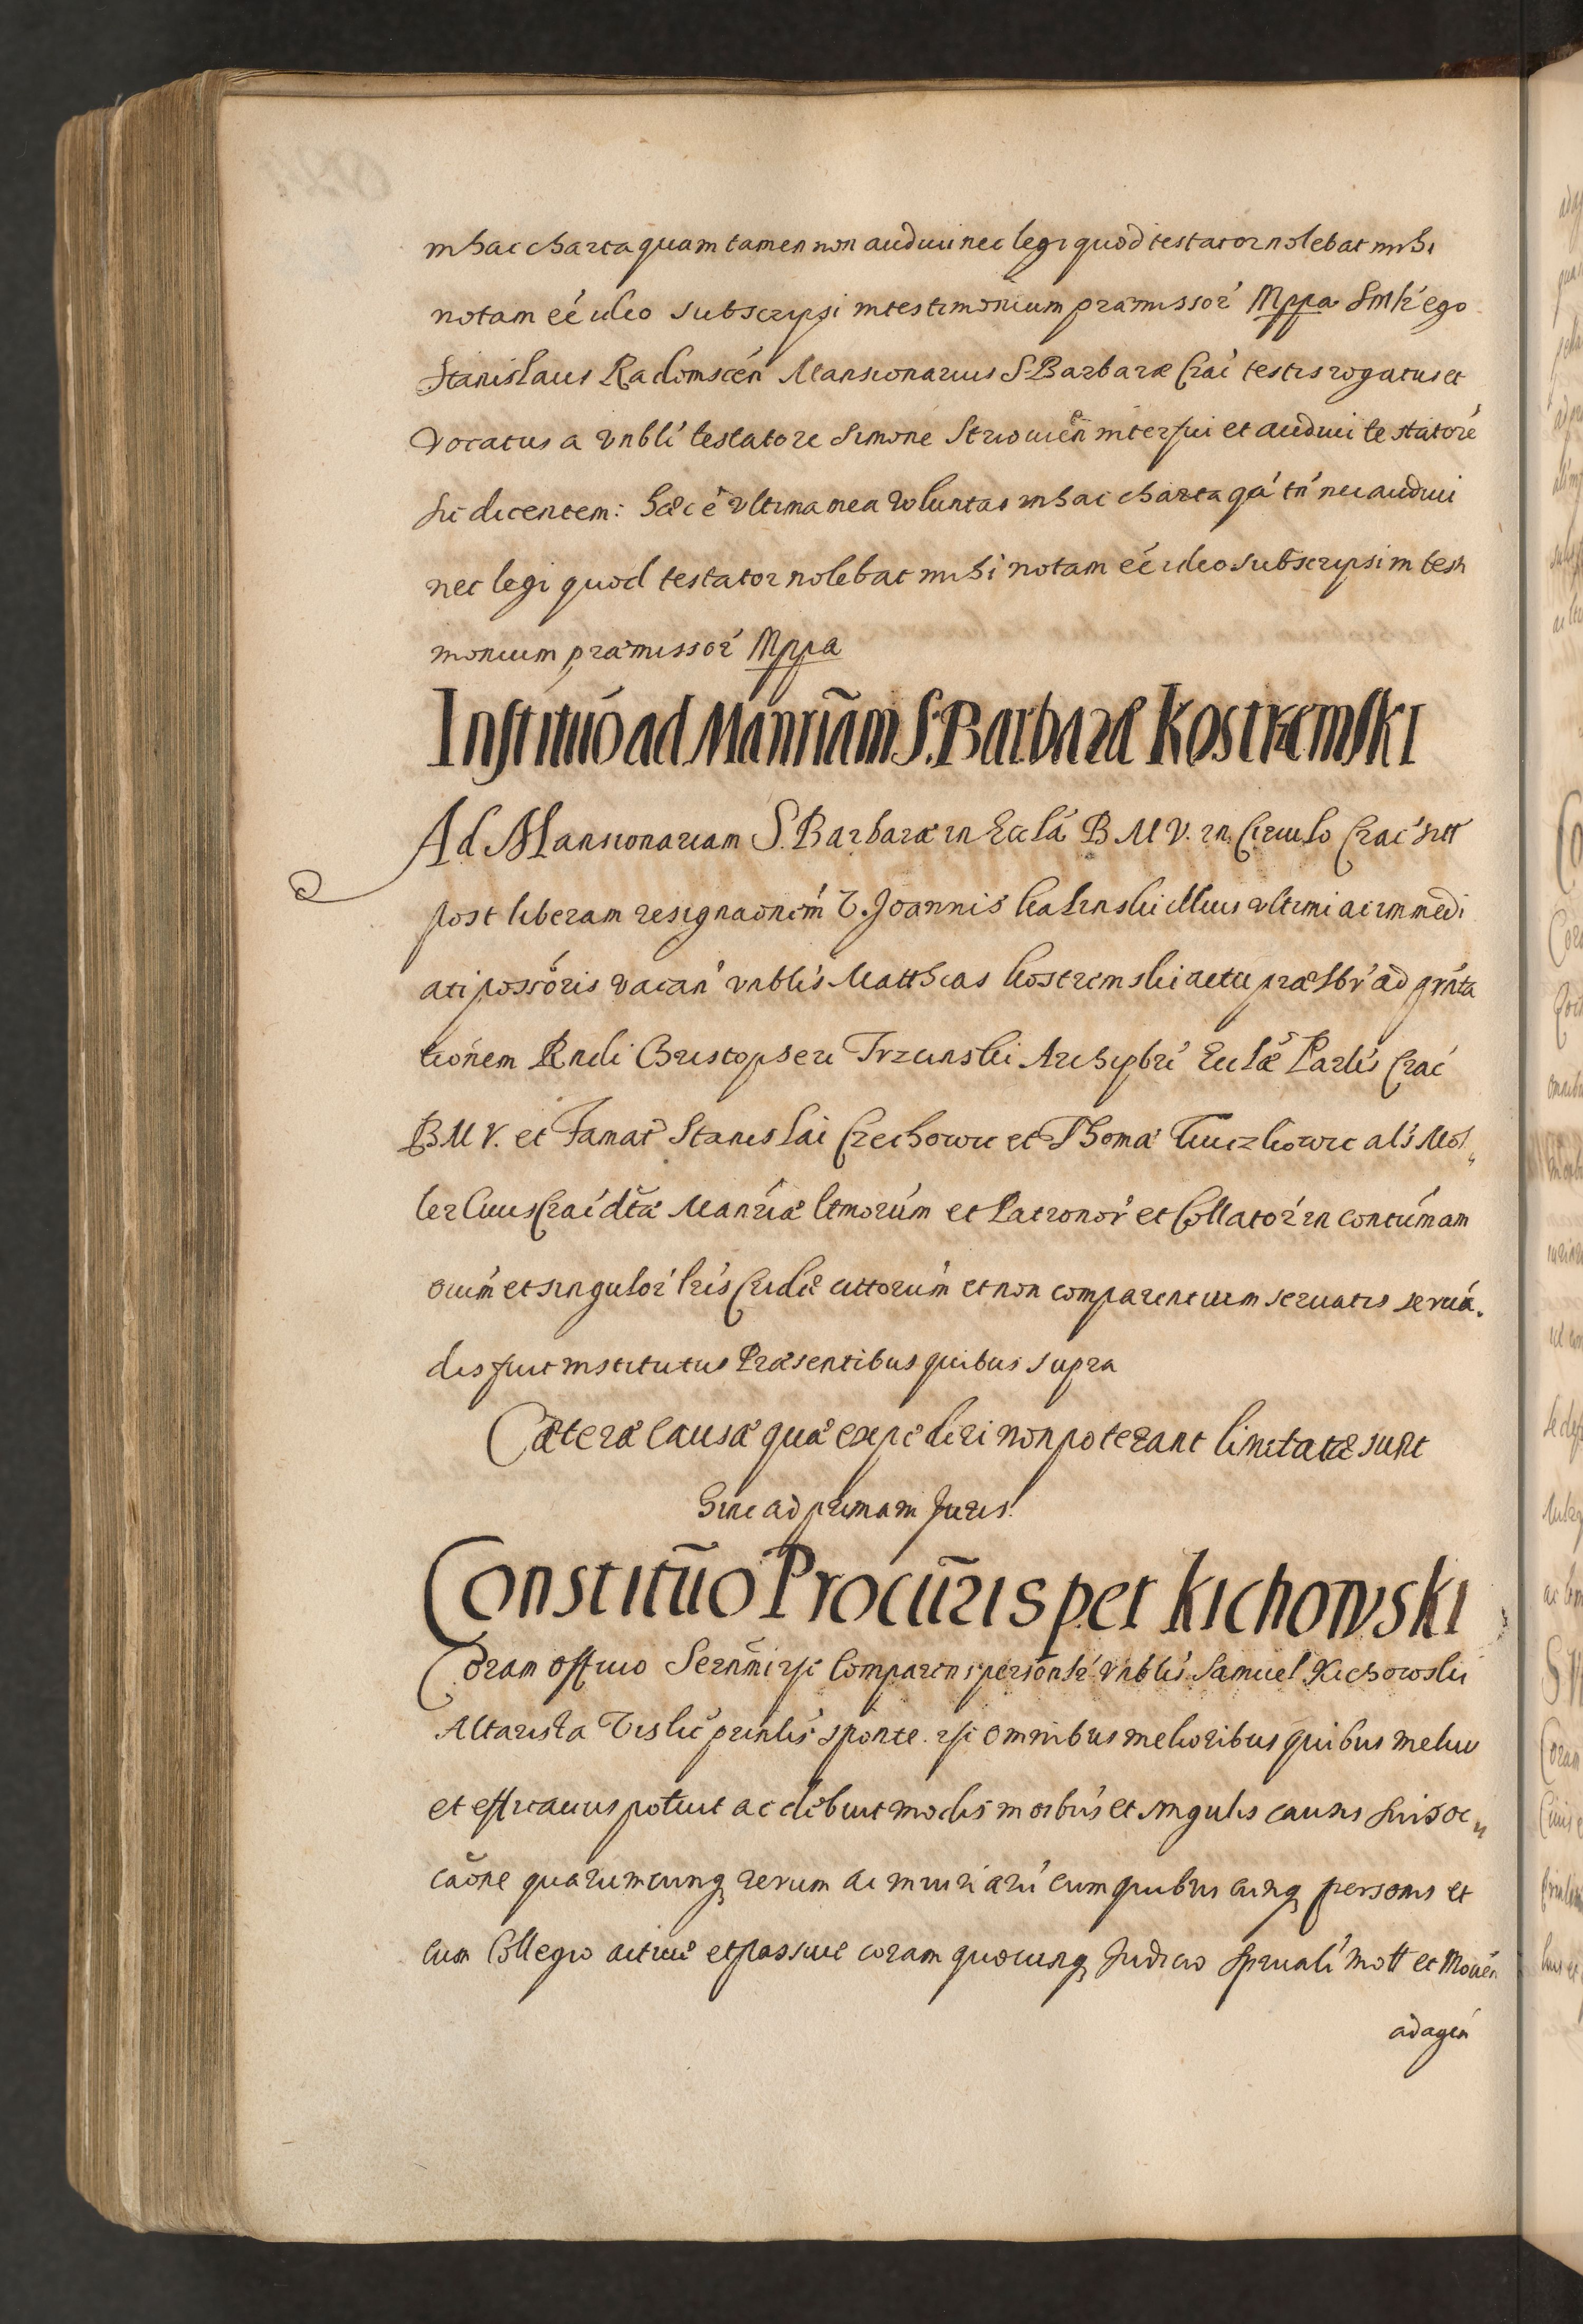 in hac charta quam tamen non audivi nec legi quod testator nolebat mihi
notam eé ideo subscripsi in testimonium præmissor̃ Mppa Simlr̃ ego
Stanislaus Radomscén Mansionarius S. Barbaræ Crac̃ testis rogatus et
vocatus a vnbli testatore Simone Striouien̂ interfui et audiui testatoré
sic dicentem: hæc ẽ vltima mea voluntas in hac charta qã tñ nec audiui
nec legi quod testator nolebat mihi notam eé ideo subscripsi in testi
monium præmissor̃ Mppa
Institutiõ ad Manriãm S. Barbaræ Kostremski
Ad Mansionariam S. Barbaræ in Eccla B. M. V. in Circulo Crac̃ sitã
post liberam resignaonem V. Joannis Kalinski illius vltimi ac immedi
ati possõris vacan̂ vnblis Matthias Kostremski actu præsbr̃ ad prñta
tionem Rndi Christopheri Trzcinski Archipbri Ecclæ Parlis Crac̃
B. M. V. et Famat̃ Stanislai Czechowic et Thomæ als Mol„
ler Ciuis Crac̃ dictæ Manriæ ltmorum et Patronor̃ et Collator̃ in contumam
oium et singulor̃ lris Cridæ cittorum et non comparentium seruatis seruã.
dis fuit institutus Præsentibus quibus supra
Cæteræ causæ quæ expediri non poterant limitatæ sunt
hinc ad primam Juris.
Constitutio Procuris per Kichowski
Coram officio Sernmi rsi Comparens personlr̃ vnblis Samuel Kichowski
Altarista Vislic̃ prinlis sponte. rsi omnibus melioribus quibus melius
et efficacius potuit ac debuit modis in oibus et singulis causis suis oc„
caõne quarumcunq rerum ac iniuriarũ cum quibuscunq personis et
cum Collegio actiuè et passiuè coram quocunq Judicio spirituali mott et Mouen
ad agen